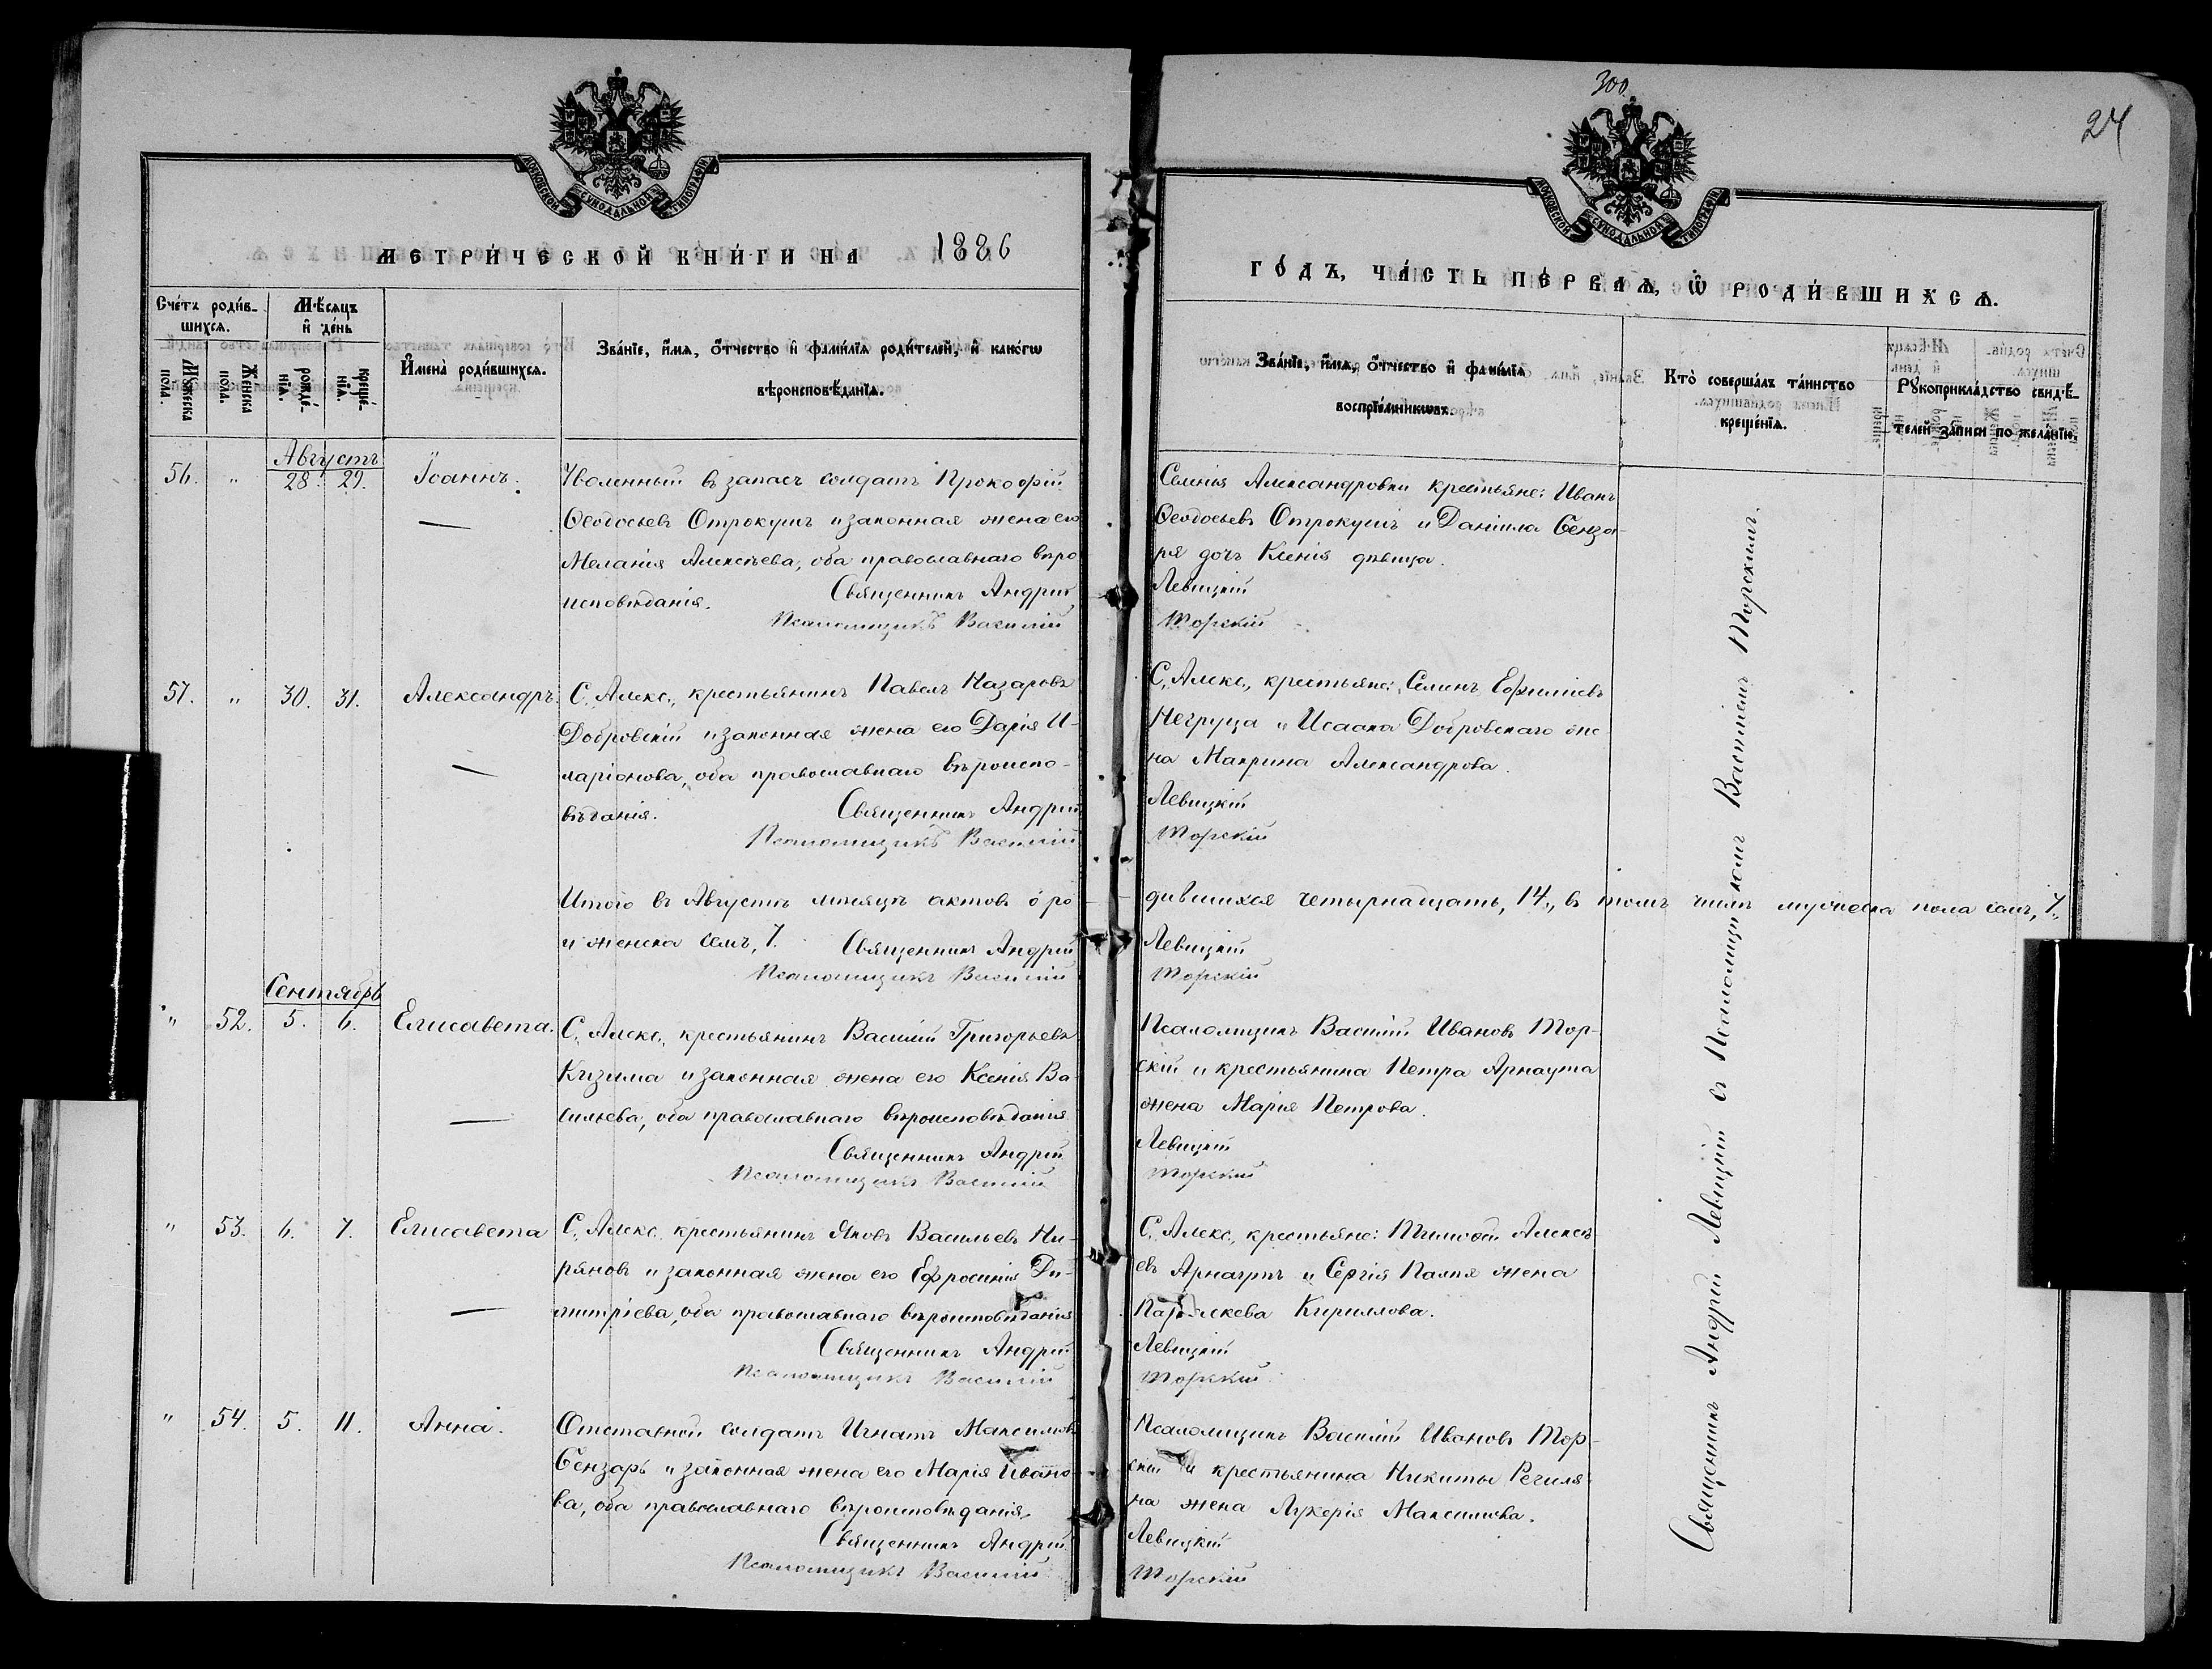 300.
24
МОСКОВСКОЙ СѴНОДАЛЬНОЙ ТИПОГРАФІИ
МОСКОВСКОЙ СѴНОДАЛЬНОЙ ТИПОГРАФІИ
МЕТРИ́ЧЕСКОЙ КНИ́ГИ НА 1886
ГО́ДЪ, ЧА́СТЬ ПЕ́РВАѦ, Ѡ РОДИ́ВШИХСѦ.
Сче́тъ роди́в-
шихсѧ.
Мꙋжеска пола.
Женска пола.
Мѣ́сѧцъ
и де́нь
рожде́-
нїѧ.
креще́-
нїѧ.
Имена̀ роди́вшихсѧ.
Зва́нїе, и́мѧ, о́тчество и фами́лїѧ роди́телей, и како́гѡ
вѣроисповѣ́данїѧ.
Зва́нїе, и́мѧ, о́тчество и фами́лїѧ
воспрїе́мникѡвъ.
Кто̀ соверша́лъ та́инство
креще́нїѧ.
Рꙋкоприкла́дство свидѣ́-
телей за́писи по жела́нїю.
Августъ
56. „ 28. 29. Іоаннъ.
Уволенный въ запасъ солдатъ Прокофій
Ѳеодосьевъ Отрокушъ и законная жена его
Меланія Алексѣева, оба православнаго вѣро
исповѣданія.
Священникъ Андрій
Псаломщикъ Василій
Селенія Александровки крестьяне: Иванъ
Ѳеодосьевъ Отрокушъ и Даніила Бенза-
ря дочь Ксенія дѣвица.
Левицкій
Торскій
57. „ 30. 31. Александръ.
С. Алекс., крестьянинъ Павелъ Назаровъ
Добровскій и законная жена его Дарія И-
ларіонова, оба православнаго вѣроиспо-
вѣданія.
Священникъ Андрій
Псаломщикъ Василій
С. Алекс., крестьяне: Семенъ Ефиміевъ
Негруца и Исаака Добровскаго же
на Макрина Александрова.
Левицкій
Торскій
Итого въ Августѣ мѣсяцѣ актовъ о ро
дившихся четырнадцать, 14., въ томъ числѣ мужеска пола семь, 7.,
и женска семь, 7.
Священникъ Андрій
Псаломщикъ Василій
Левицкій
Торскій
Сентябрь
„ 52. 5. 6. Елисавета.
С. Алекс., крестьянинъ Василій Григорьевъ
Кизима и законная жена его Ксенія Ва-
сильева, оба православнаго вѣроисповѣданія
Священникъ Андрій
Псаломщикъ Василій
Псаломщикъ Василій Ивановъ Тор-
скій и крестьянина Петра Арнаута
жена Марія Петрова.
Левицкій
Торскій
„ 53. 6. 7. Елисавета
С. Алекс. крестьянинъ Яковъ Васильевъ Ни-
ряновъ и законная жена его Ефросинія Ди-
митріева, оба православнаго вѣроисповѣданія
Священникъ Андрій
Псаломщикъ Василій
С. Алекс., крестьяне: Тимоѳей Алексѣ
евъ Арнаутъ и Сергія жена
Параскева Кириллова.
Левицкій
Торскій
„ 54. 5. 11. Анна.
Отставной солдатъ Игнатъ Максимовъ
Бензарь и законная жена его Марія Ивано-
ва, оба православнаго вѣроисповѣданія.
Священникъ Андрій
Псаломщикъ Василій
Псаломщикъ Василій Ивановъ Тор-
скій и крестьянина Никиты Речиля
на жена Лукерія Максимова.
Левицкій
Торскій
Священникъ Андрій Левицкій съ Псаломщикомъ Василіемъ Торскимъ.